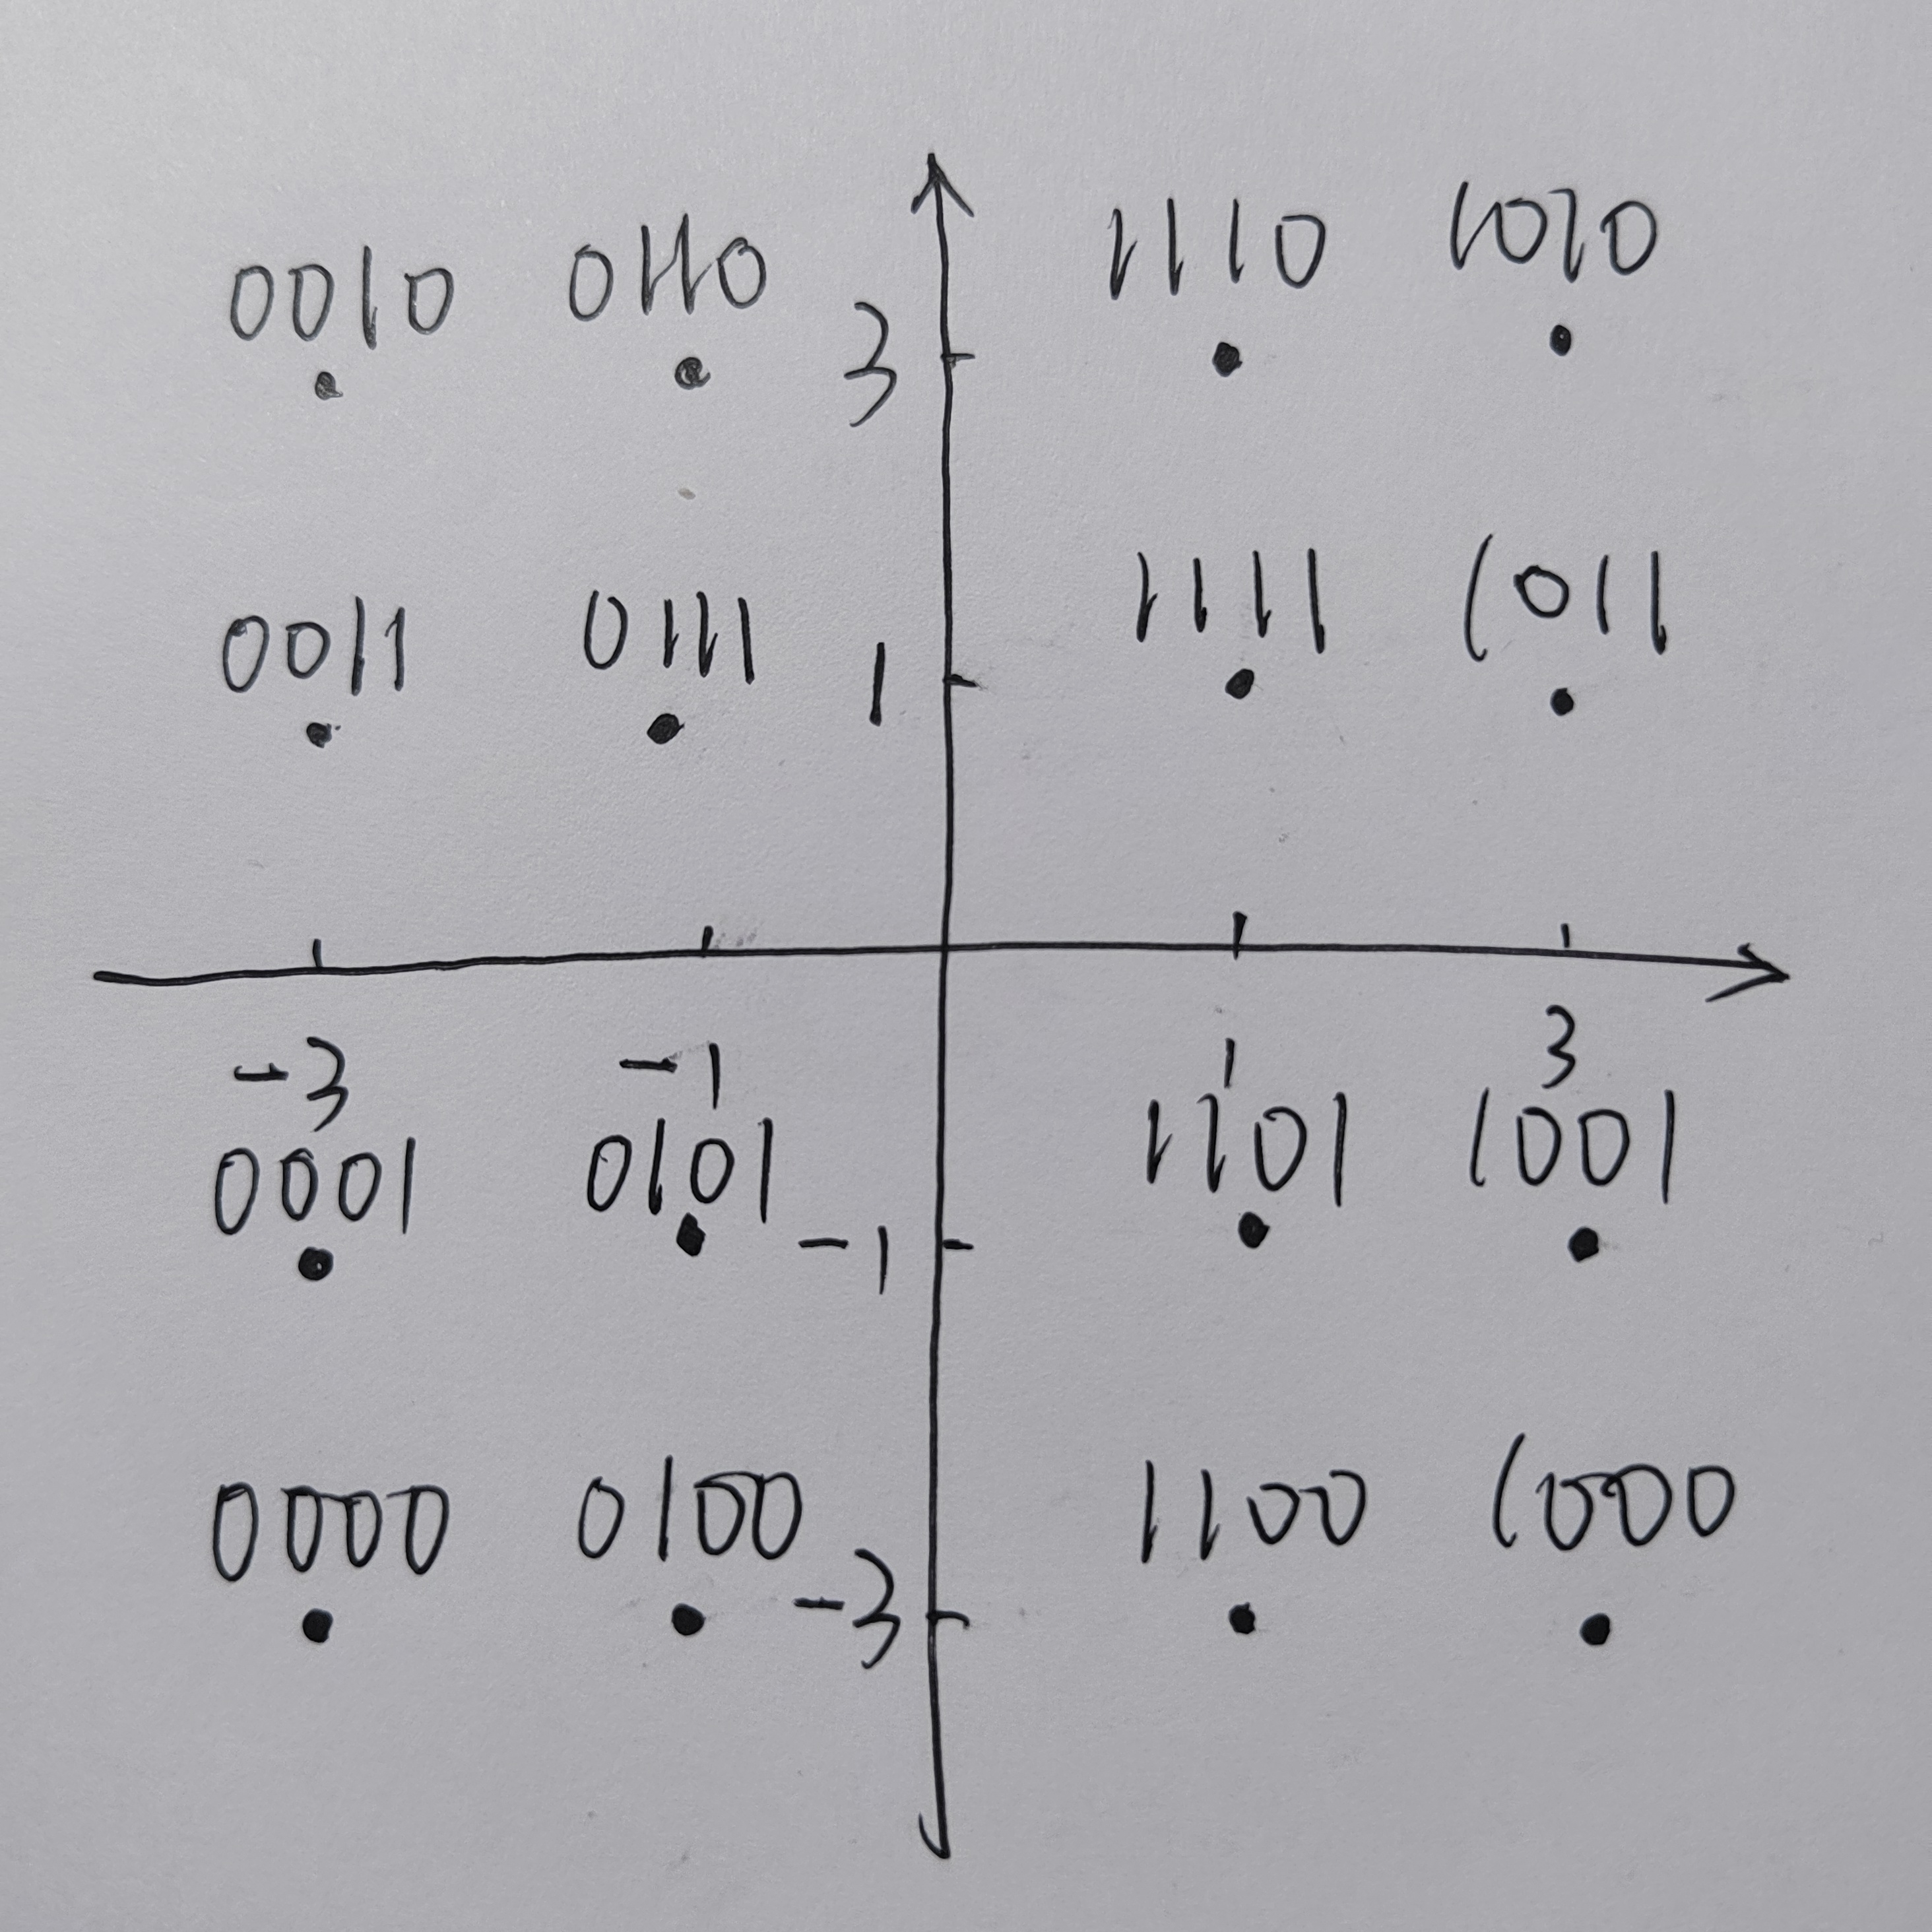 0010 0110 1110 1010
3
0011 0111 1111 1011
1
-3 -1 1 3
0001 0101 1101 1001
-1
0000 0100 1100 1000
-3